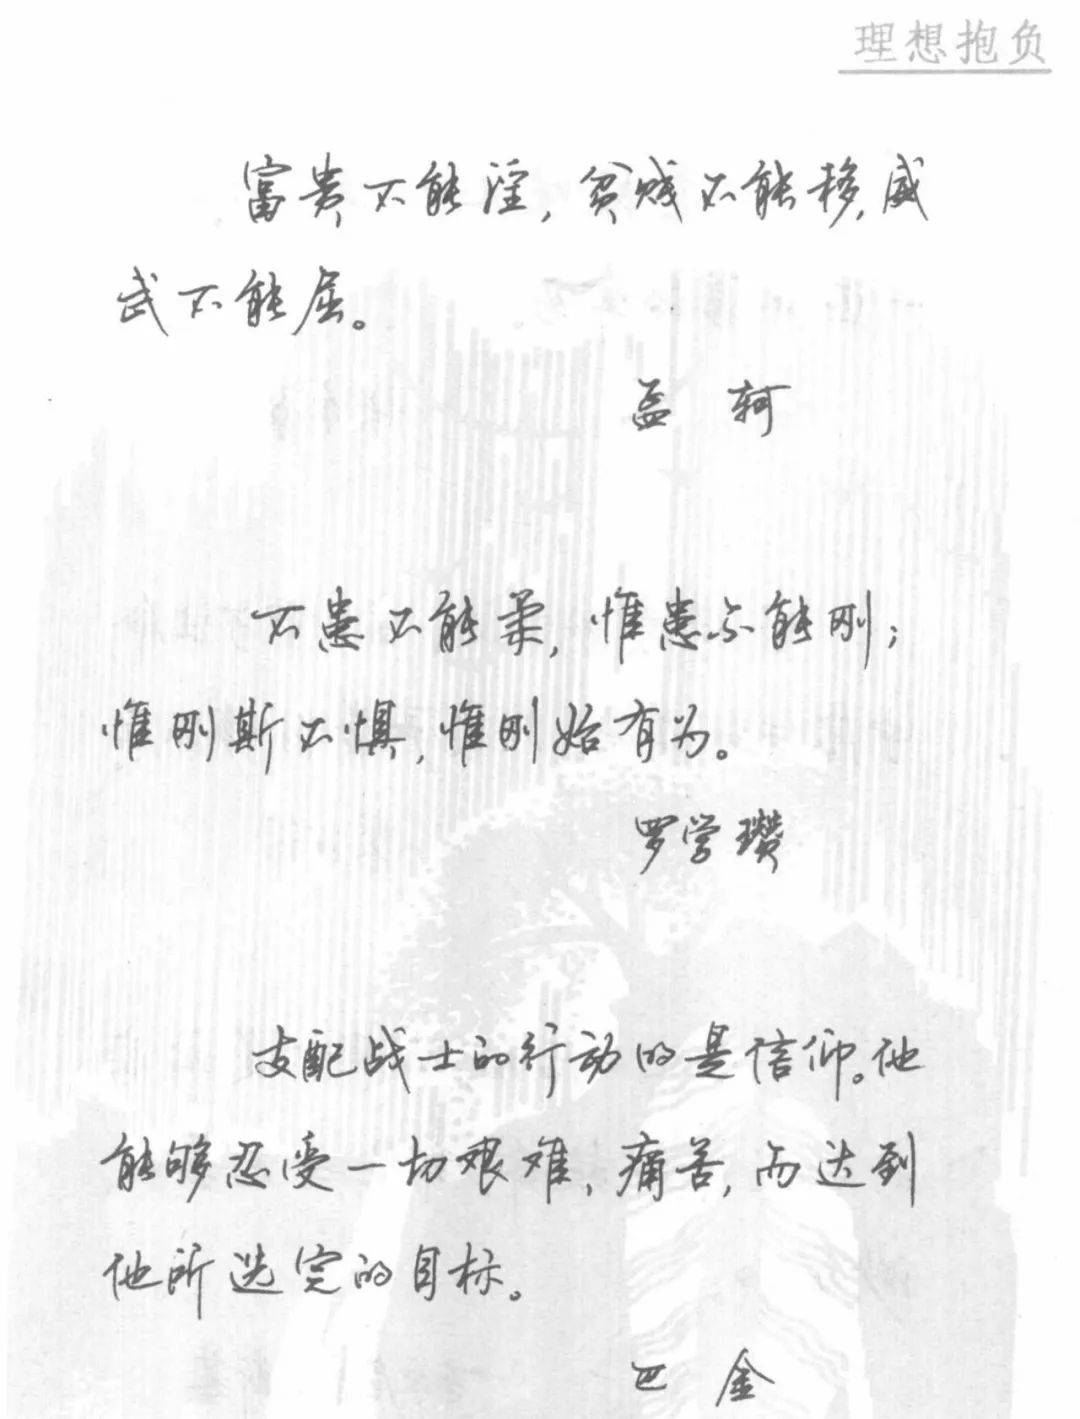 理想抱负
富贵不能淫，贫贱不能移，威
武不能屈。
孟 轲
不患不能柔，惟患不能刚；
惟刚斯不惧，惟刚始有为。
罗学瓒
支配战士的行动的是信仰。他
能够忍受一切艰难、痛苦，而达到
他所选定的目标。
巴 金